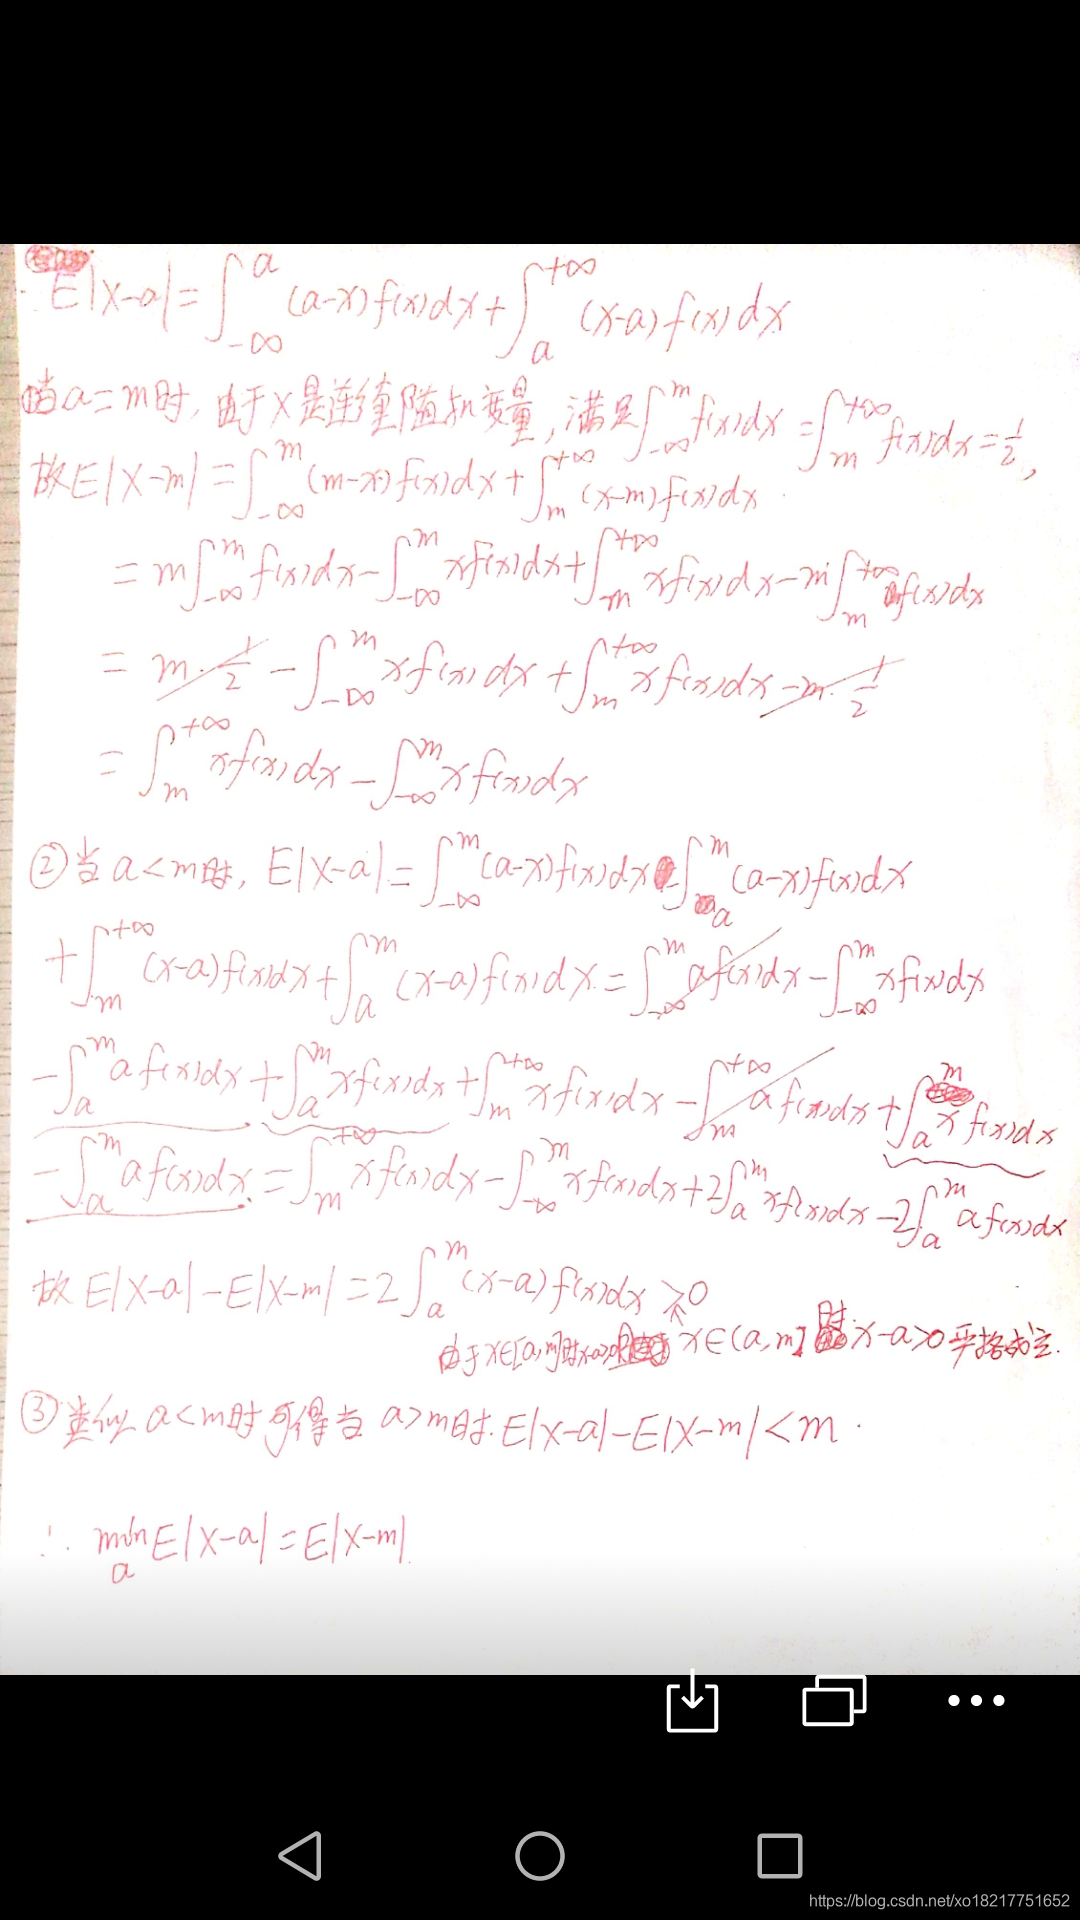 E|X-a|=∫_{-∞}^{a}(a-x)f(x)dx+∫_{a}^{+∞}(x-a)f(x)dx
当a=m时,由于X是连续随机变量,满足∫_{-∞}^{m}f(x)dx=∫_{m}^{+∞}f(x)dx=1/2,
故E|X-m|=∫_{-∞}^{m}(m-x)f(x)dx+∫_{m}^{+∞}(x-m)f(x)dx
=m∫_{-∞}^{m}f(x)dx-∫_{-∞}^{m}xf(x)dx+∫_{m}^{+∞}xf(x)dx-m∫_{m}^{+∞}f(x)dx
=m·1/2-∫_{-∞}^{m}xf(x)dx+∫_{m}^{+∞}xf(x)dx-m·1/2
=∫_{m}^{+∞}xf(x)dx-∫_{-∞}^{m}xf(x)dx
②当a<m时,E|X-a|=∫_{-∞}^{m}(a-x)f(x)dx-∫_{a}^{m}(a-x)f(x)dx
+∫_{m}^{+∞}(x-a)f(x)dx+∫_{a}^{m}(x-a)f(x)dx=∫_{-∞}^{m}af(x)dx-∫_{-∞}^{m}xf(x)dx
-∫_{a}^{m}af(x)dx+∫_{a}^{m}xf(x)dx+∫_{m}^{+∞}xf(x)dx-∫_{m}^{+∞}af(x)dx+∫_{a}^{m}xf(x)dx
-∫_{a}^{m}af(x)dx=∫_{m}^{+∞}xf(x)dx-∫_{-∞}^{m}xf(x)dx+2∫_{a}^{m}xf(x)dx-2∫_{a}^{m}af(x)dx
故E|X-a|-E|X-m|=2∫_{a}^{m}(x-a)f(x)dx≥0
由于x∈[a,m]时x-a≥0 x∈(a,m]时x-a>0严格成立.
③类似a<m时可得当a>m时.E|X-a|-E|X-m|<m.
∴ min_{a}E|X-a|=E|X-m|.
https://blog.csdn.net/xo18217751652